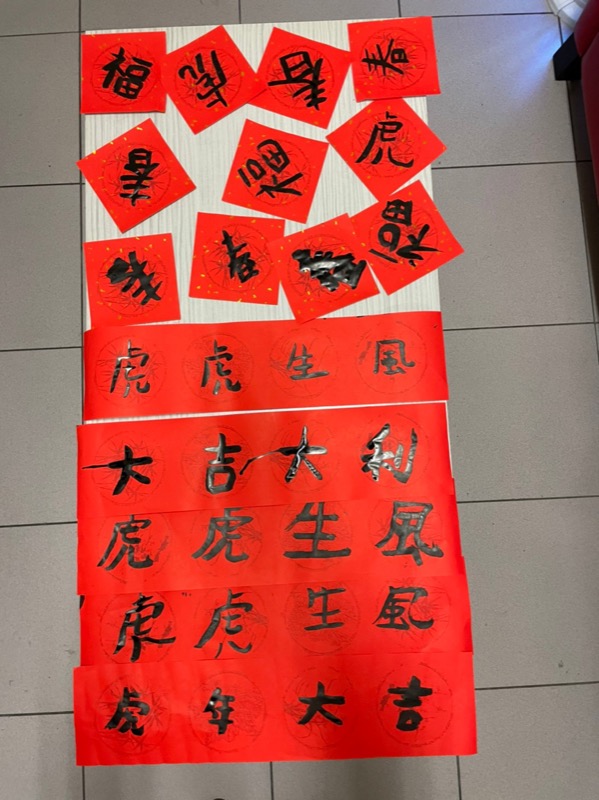 福 虎 春 春
春 福 虎
福
虎虎生風
大吉大利
虎虎生風
虎虎生風
虎年大吉